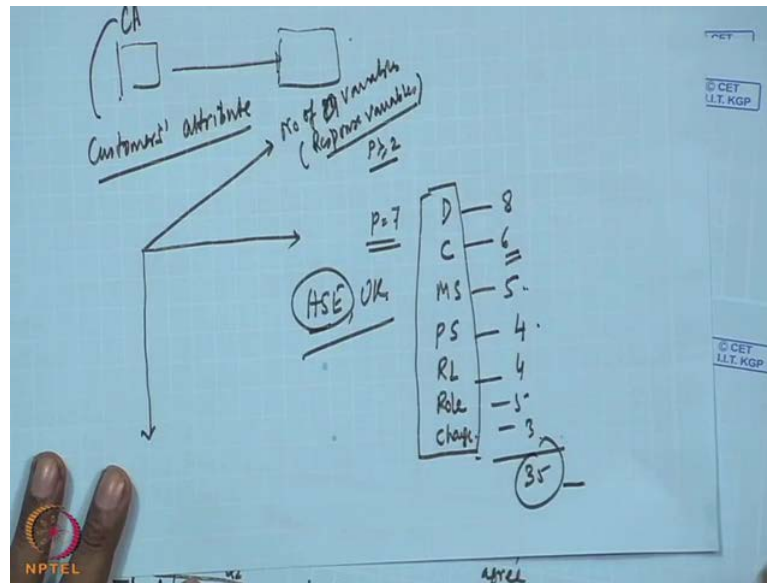 CA
Customers' attribute
No of Variables
(Response variables)
p ≥ 2
p = 7
HSE, UK
D — 8
C — 6
MS — 5
PS — 4
RL — 4
Role — 5
Change — 3
35
© CET
I.I.T. KGP
© CET
I.I.T. KGP
NPTEL